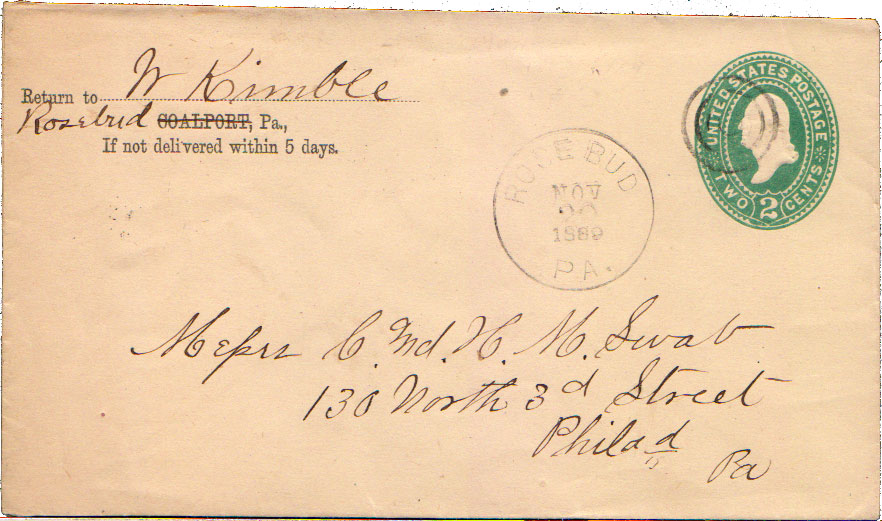 W Kimble
Return to
Rosebud COALPORT, Pa.,
If not delivered within 5 days.
UNITED STATES POSTAGE
TWO 2 CENTS
ROSE BUD
NOV
20
1889
PA.
Messrs C. Md. H. M. Swab
130 North 3d Street
Philad
Pa